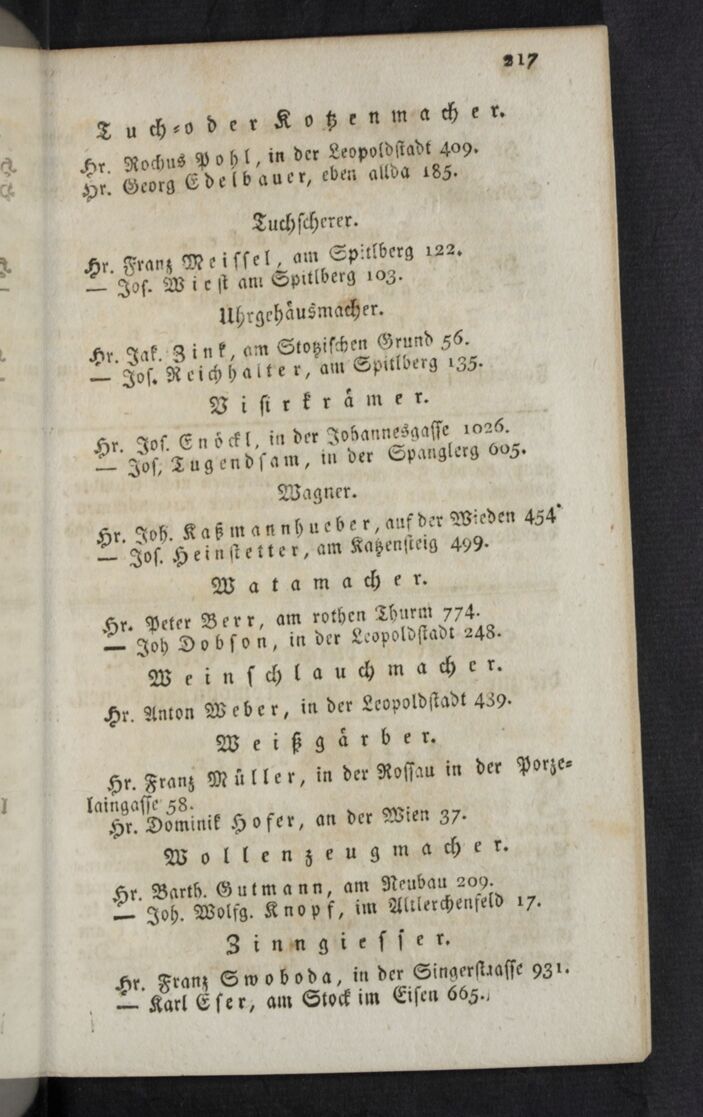 217
Tuch=oder Kotzenmacher.
Hr. Rochus Pohl, in der Leopoldstadt 409.
Hr. Georg Edelbauer, eben allda 185.
Tuchscherer.
Hr. Franz Meissel, am Spitlberg 122.
— Jos. Wiest am Spitlberg 103.
Uhrgehäusmacher.
Hr. Jak. Zink, am Stotzischen Grund 56.
— Jos. Reichhalter, am Spitlberg 135.
Visirkrämer.
Hr. Jos. Enöckl, in der Johannesgasse 1026.
— Jos, Tugendsam, in der Spanglerg 605.
Wagner.
Hr. Joh. Kaßmannhueber, auf der Wieden 454.
— Jos. Heinstetter, am Katzensteig 499.
Watamacher.
Hr. Peter Berr, am rothen Thurm 774.
— Joh Dobson, in der Leopoldstadt 248.
Weinschlauchmacher.
Hr. Anton Weber, in der Leopoldstadt 439.
Weißgärber.
Hr. Franz Müller, in der Rossau in der Porze=
laingasse 58.
Hr. Dominik Hofer, an der Wien 37.
Wollenzeugmacher.
Hr. Barth. Gutmann, am Neubau 209.
— Joh. Wolfg. Knopf, im Altlerchenfeld 17.
Zinngiesser.
Hr. Franz Swoboda, in der Singerstrasse 931.
— Karl Eser, am Stock im Eisen 665.